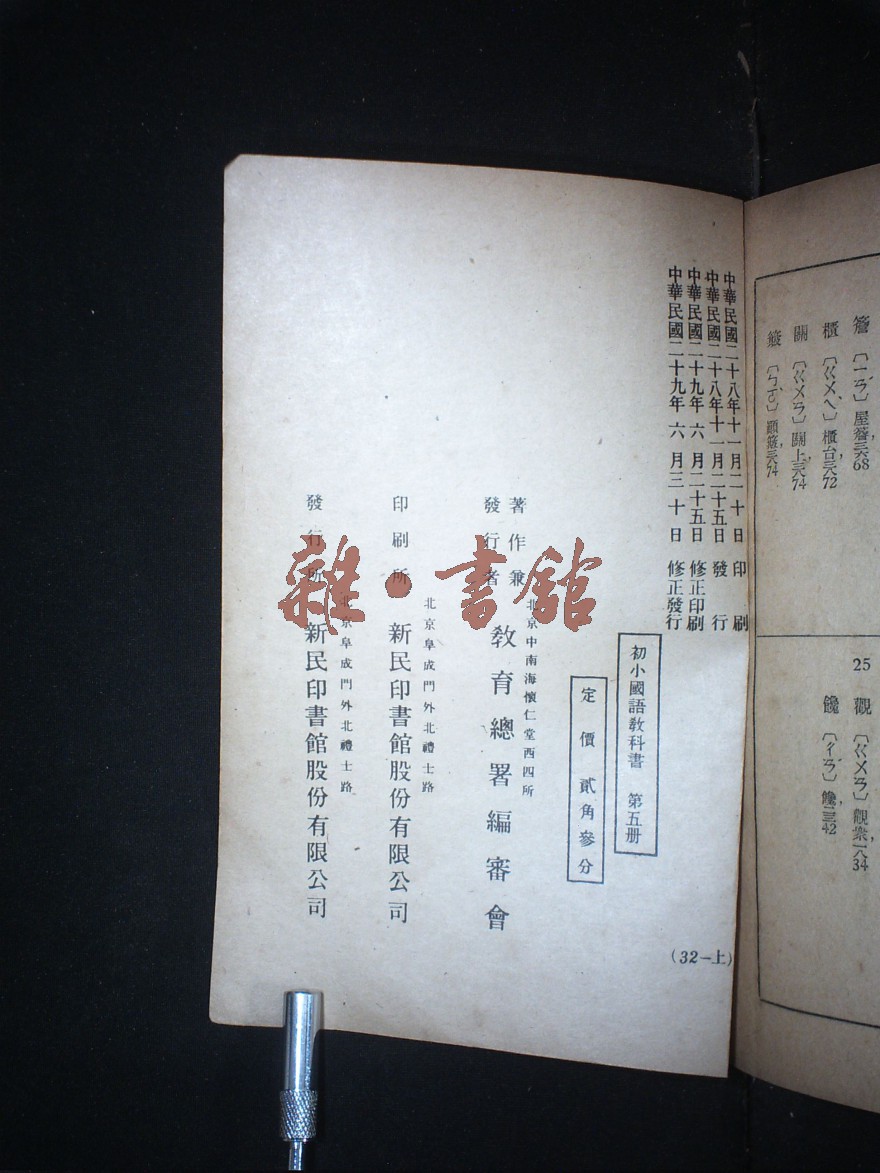 簷〔ㄧㄢˊ〕屋簷，三六68
櫃〔ㄍㄨㄟˋ〕櫃台，三六72
關〔ㄍㄨㄢ〕關上，三六74
簸〔ㄅㄛˇ〕顛簸，三六74
25
觀〔ㄍㄨㄢ〕觀衆，一八34
饞〔ㄔㄢˊ〕
中華民國二十八年十一月二十日　印刷
中華民國二十八年十一月二十五日　發行
中華民國二十九年六月二十五日　修正印刷
中華民國二十九年六月三十日　修正發行
初小國語教科書　第五册
定價貳角參分
(32—上)
北京中南海懷仁堂西四所
著作兼
發行者
教育總署編審會
北京阜成門外北禮士路
印刷所　新民印書館股份有限公司
北京阜成門外北禮士路
發行所　新民印書館股份有限公司
雜·書館